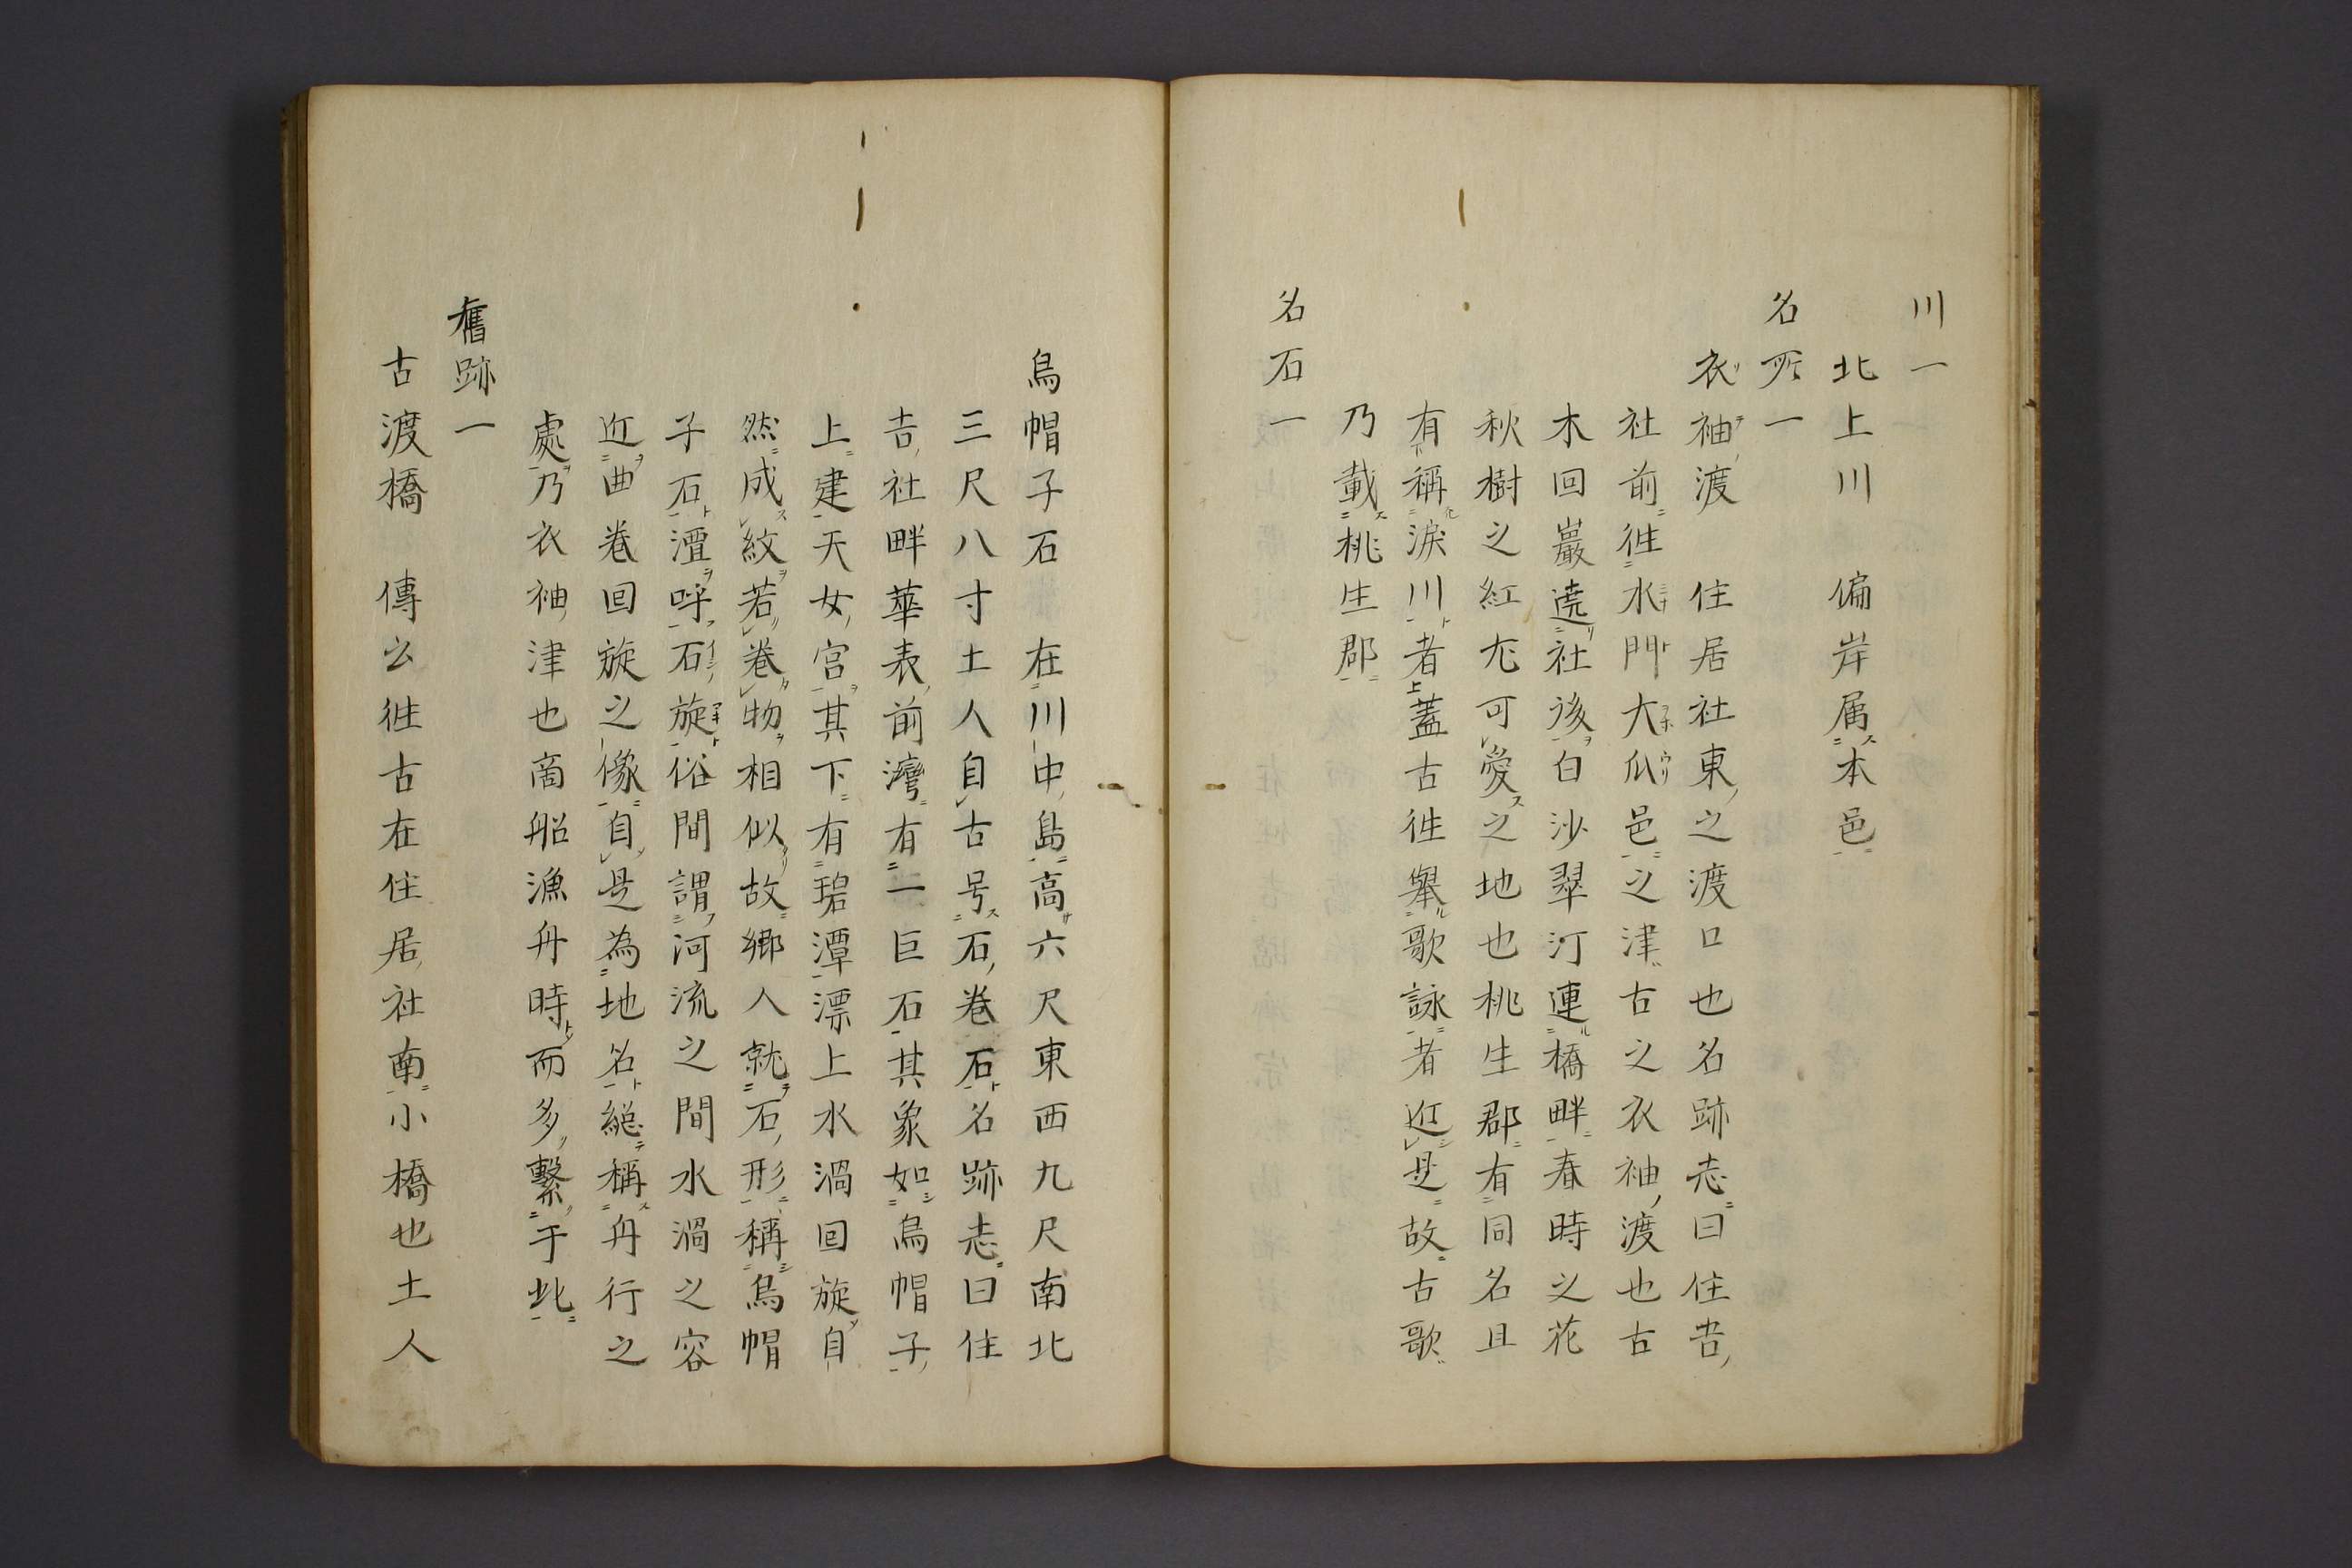 川一
北上川　偏岸属本邑
名所一
衣袖渡　住居社東之渡口也名跡志曰住吉
社前徃水門大瓜邑之津古之衣袖渡也古
木回巖遶社後白沙翠汀連橋畔春時之花
秋樹之紅尤可愛之地也桃生郡有同名且
有稱淚川者蓋古徃舉歌詠者近是故古歌
乃載桃生郡
名石一
烏帽子石　在川中島高六尺東西九尺南北
三尺八寸土人自古号石卷石名跡志曰住
吉社畔華表前灣有一巨石其象如烏帽子
上建天女宮其下有碧潭漂上水渦回旋自
然成紋若卷物相似故鄉人就石形稱烏帽
子石澶呼石旋俗間謂河流之間水渦之容
近曲卷回旋之像自是為地名總稱舟行之
處乃衣袖津也啇船漁舟時而多繫于此
舊跡一
古渡橋　傳云徃古在住居社南小橋也土人